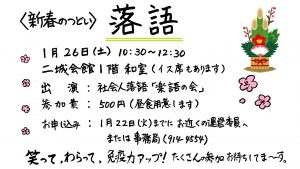 〈新春のつどい〉 落語
1月26日(土) 10:30～12:30
二城会館1階 和室(イス席もあります)
出演：社会人落語「楽語の会」
参加費：500円(昼食用意します)
お申込み：1月22日(火)までに お近くの運営委員へ
または 事務局(914-4554)
笑って、わらって、免疫力アップ! たくさんの参加お待ちしてま～す。